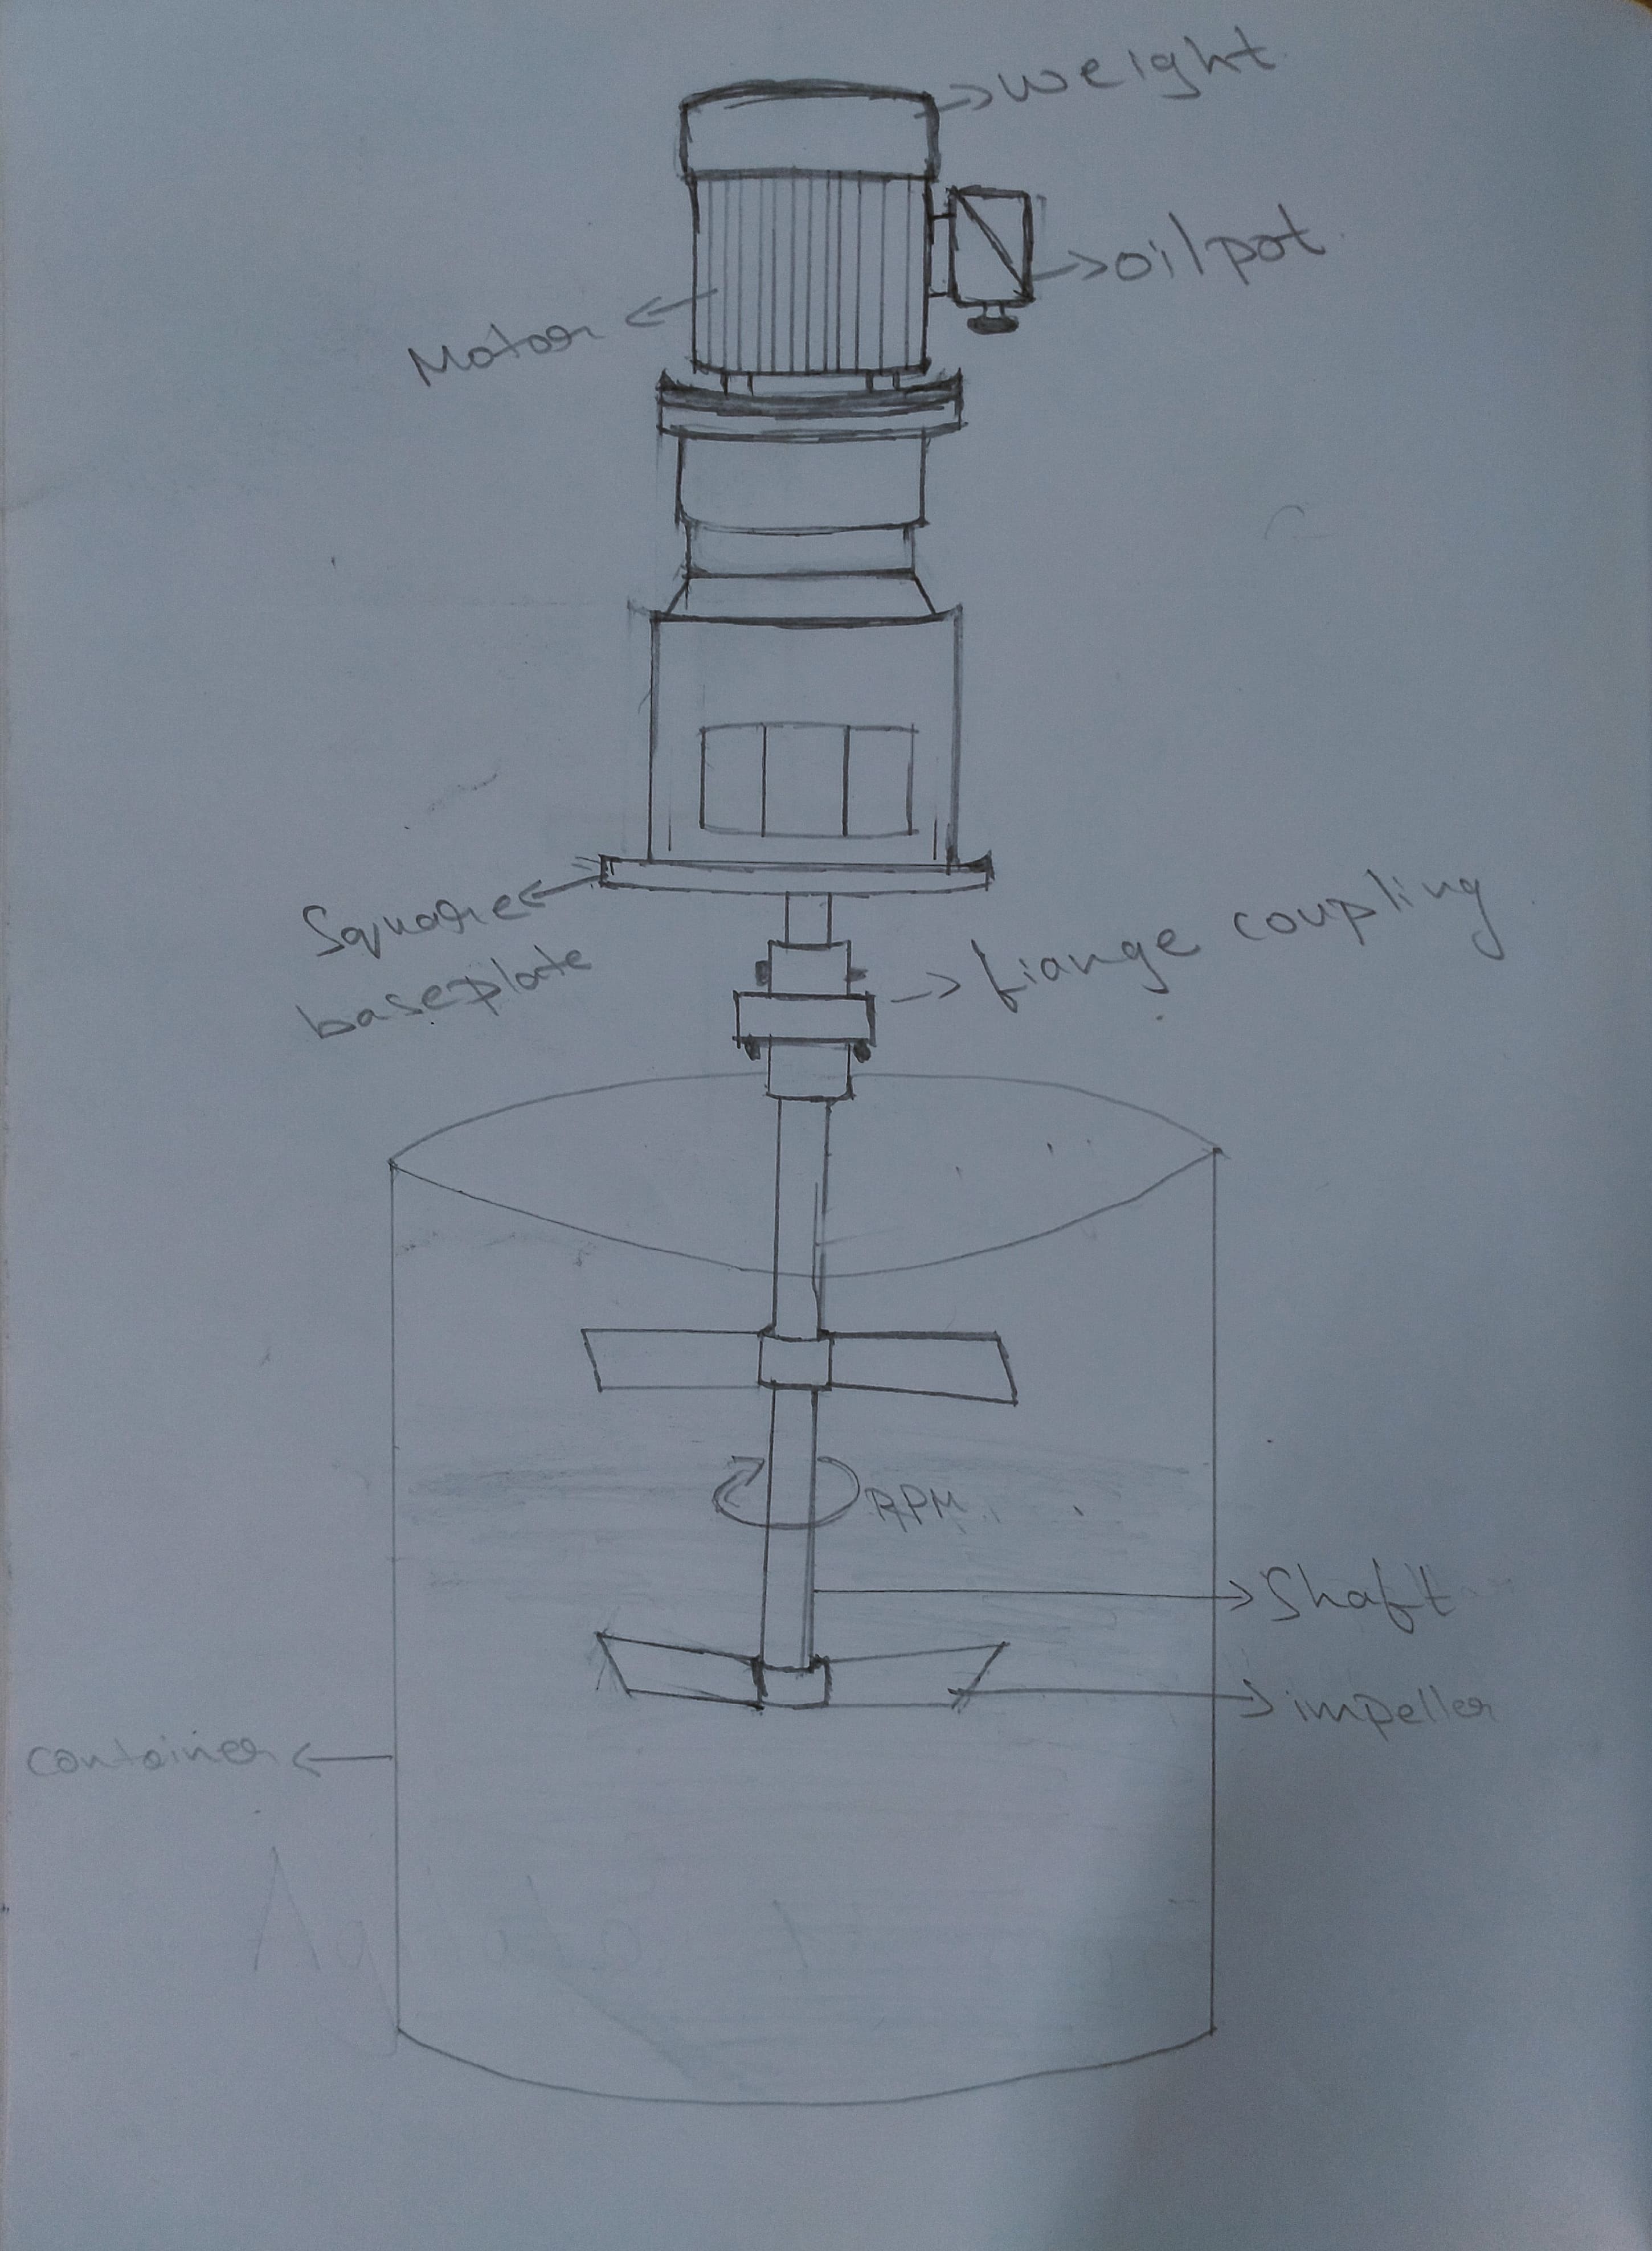 weight
oilpot
Motor
Square
baseplate
flange coupling
RPM
Shaft
impeller
container